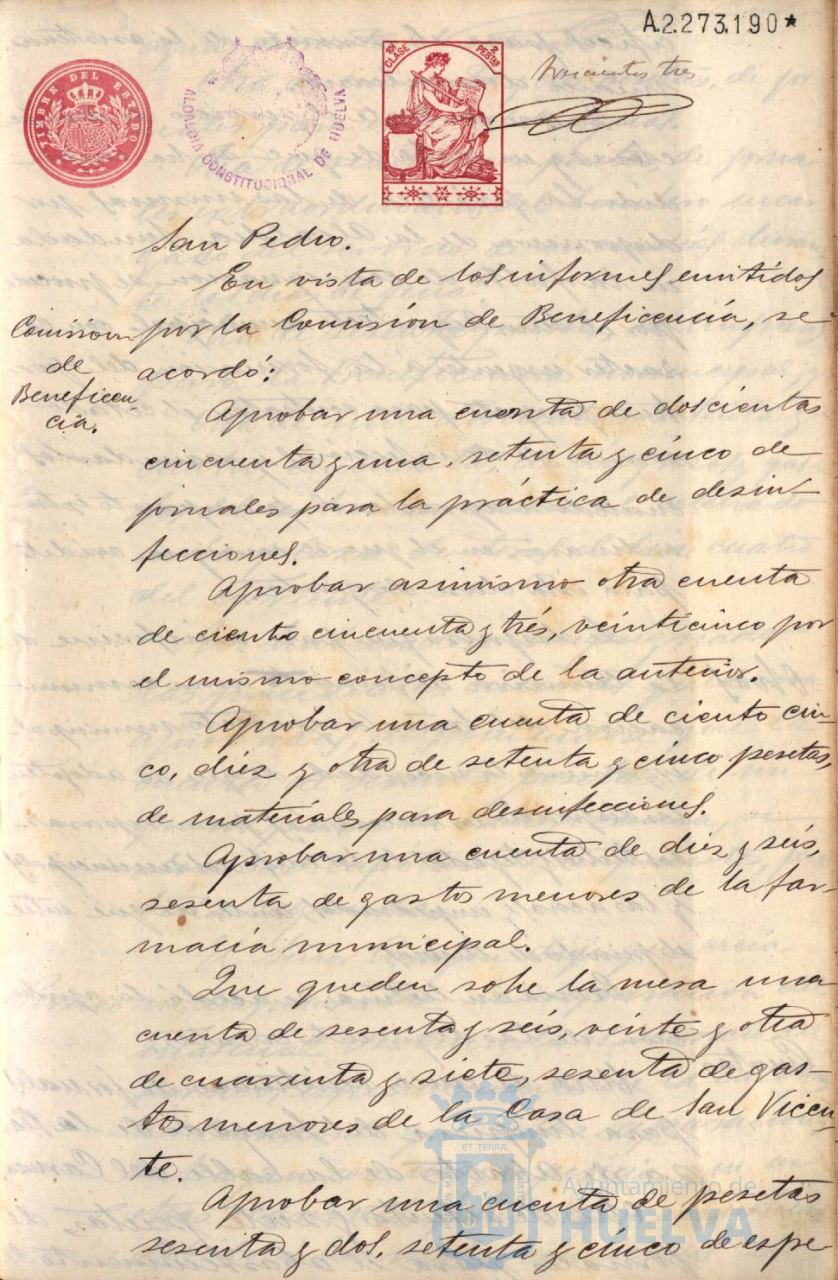 A.2.273.190*
TIMBRE DEL ESTADO
ALCALDIA CONSTITUCIONAL DE HUELVA
10ª CLASE 2 PESETAS
trescientos tres
San Pedro.
En vista de los informes emitidos
Comision de Beneficencia.
por la Comisión de Beneficencia, se
acordó:
Aprobar una cuenta de doscientas
cincuenta y una, setenta y cinco de
jornales para la práctica de desin-
fecciones.
Aprobar asimismo otra cuenta
de ciento cincuenta y trés, veinticinco por
el mismo concepto de la anterior.
Aprobar una cuenta de ciento cin-
co, diéz y otra de setenta y cinco pesetas,
de materiales para desinfecciones.
Aprobar una cuenta de diéz y seis,
sesenta de gastos menores de la far-
macia municipal.
Que queden sobre la mesa una
cuenta de sesenta y seis, veinte y otra
de cuarenta y siete, sesenta de gas-
tos menores de la Casa de San Vicen-
te.
Aprobar una cuenta de pesetas
sesenta y dos, setenta y cinco de espe
ET TERRÆ
Ayuntamiento de
HUELVA